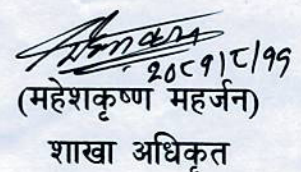 २०८१|८|११
(महेशकृष्ण महर्जन)
शाखा अधिकृत